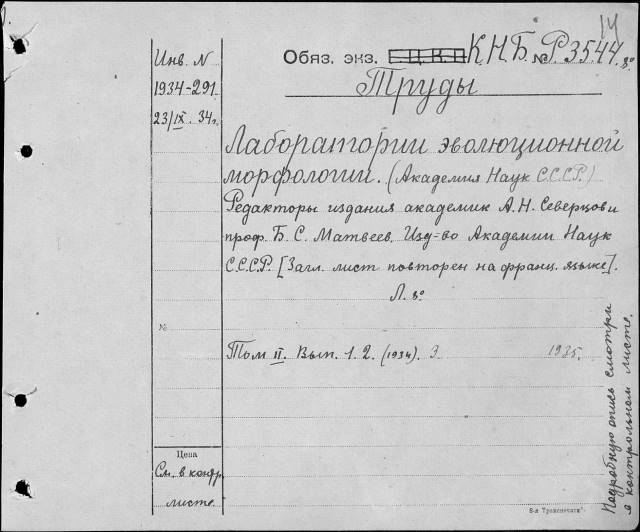 14
Инв. N
1934-291.
23/IX. 34г.
Обяз. экз. С.Ц.К.П К.Н.Б. № Р3544. 8°
Труды
Лаборатории эволюционной
морфологии. (Академия Наук С.С.С.Р.)
Редакторы издания академик А. Н. Северцов и
проф. Б. С. Матвеев. Изд-во Академии Наук
С.С.С.Р. [Загл. лист повторен на франц. языке].
Л. 8°
№
Том II. Вып. 1. 2. (1934). 3 1935.
Цена
См. в контр.
листе.
Подробную опись смотри
в контрольном листе.